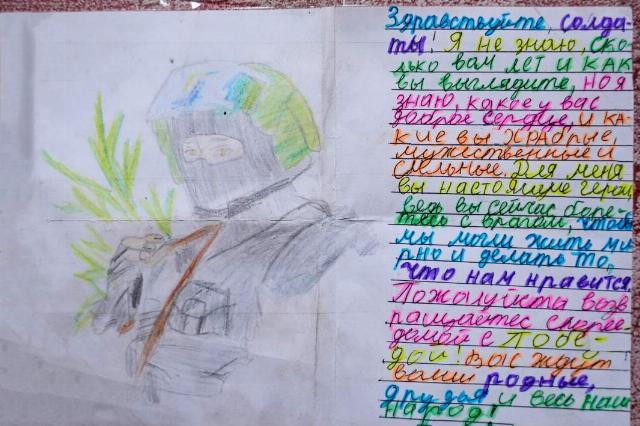 Здравствуйте, солда-
ты! Я не знаю, ско-
лько вам лет и как
вы выглядите, но я
знаю, какое у вас
доброе сердце, и ка-
кие вы храбрые,
мужественные и
сильные. Для меня
вы настоящие герои,
ведь вы сейчас боре-
тесь с врагом, чтобы
мы могли жить ми-
рно и делать то,
что нам нравится.
Пожалуйста возв
ращайтес скорее
домой с Побе-
дой! Вас ждут
ваши родные,
друзья и весь наш
народ!